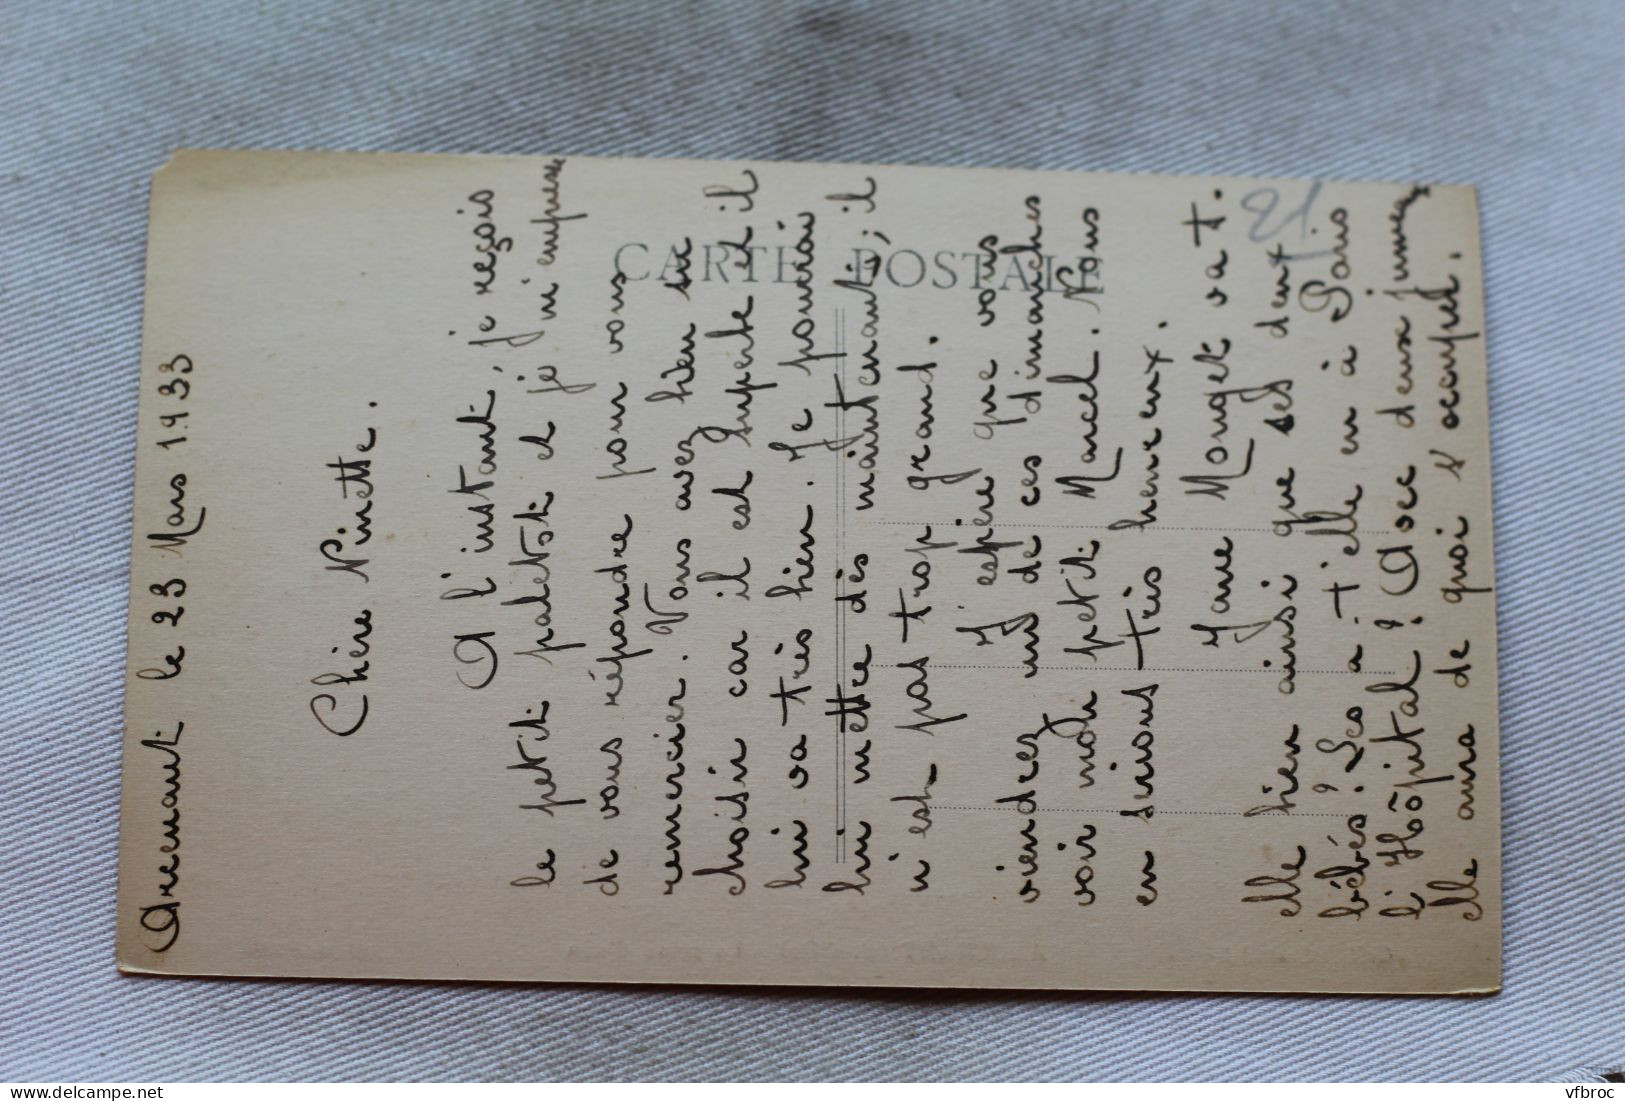 Aremant le 23 Mars 1933
Chère Ninette.
A l'instant, je reçois
le petit paletot et je m'empresse
de vous répondre pour vous
remercier. Vous avez bien su
choisir car il est superbe et il
lui va très bien. Je pourrai
lui mettre dès maintenant; il
n'est pas trop grand.
J'espère que vous
viendrez un de ces dimanches
voir mon petit Marcel. Nous
en serions très heureux.
Mme Monget va t.
elle bien ainsi que ses deux
bébés? Les a-t'elle eu à Paris
l'Hôpital? Avec deux jumeaux
elle aura de quoi s'occuper.
CARTE POSTALE
21
www.delcampe.net
vfbroc